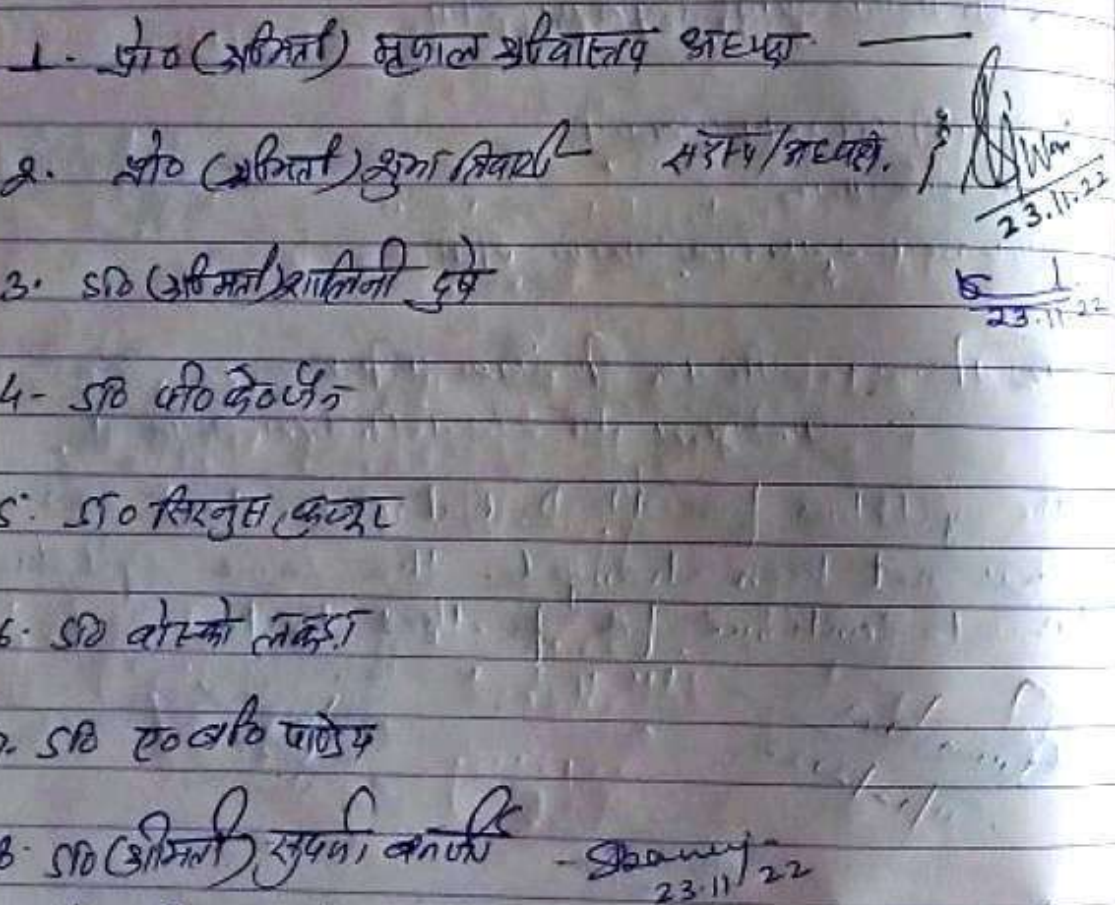 1. प्रो० (श्रीमती) मृणाल श्रीवास्तव अध्यक्ष —
2. प्रो० (श्रीमती) शुभा तिवारी सदस्य/अध्यक्ष.
23.11.22
3. डॉ० (श्रीमती) शालिनी दुबे
23.11.22
4- डॉ० पी० के० जैन
5. डॉ० सिरनुस कुजूर
6. डॉ० बोस्को लकड़ा
7. डॉ० ए० बी० पाण्डेय
8. डॉ० (श्रीमती) सुपर्णा बनर्जी - 
23.11.22